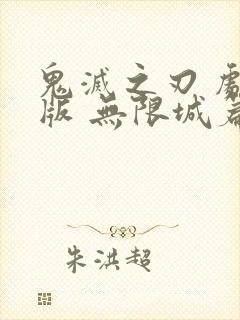 鬼滅之刃
版 無限城
朱洪超